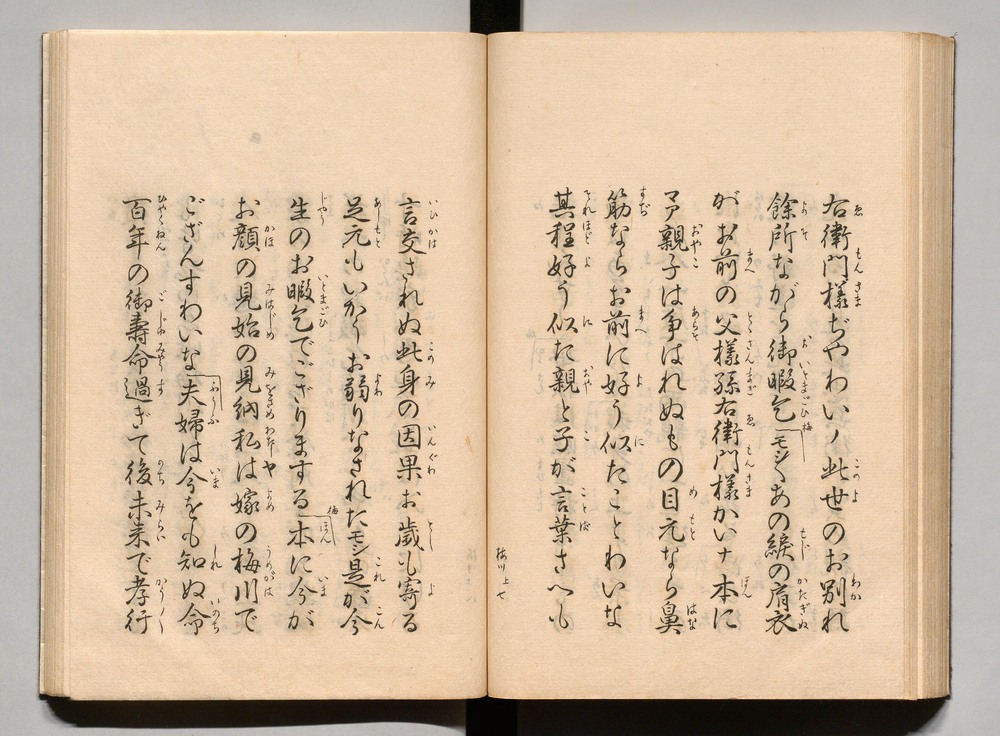 右衛門様ぢやわいノ此世のお別れ
餘所ながら御暇乞モシ〱あの綟の肩衣
がお前の父様孫右衛門様かいナ本に
マア親子は争はれぬもの目元なら鼻
筋ならお前に好う似たことわいな
其程好う似た親と子が言葉さへも
梅川上 七
言交されぬ此身の因果お歳も寄る
足元もいかうお弱りなされたモシ是が今
生のお暇乞でござりまする本に今が
お顔の見始の見納私は嫁の梅川で
ござんすわいな夫婦は今をも知ぬ命
百年の御壽命過ぎて後未来で孝行